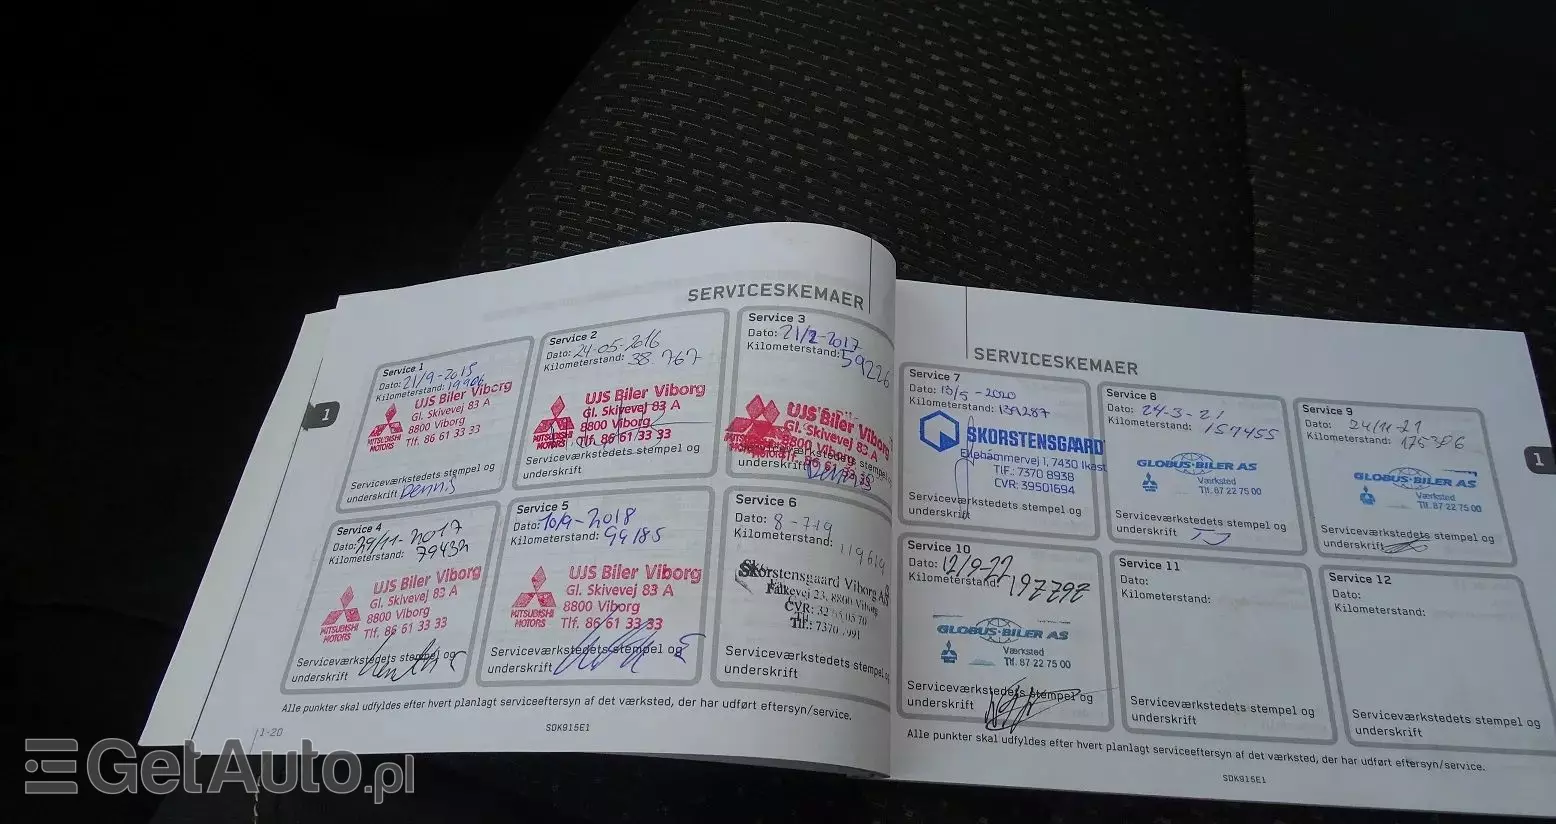 SERVICESKEMAER
Service 1
Dato: 21/9-2015
Kilometerstand: 19906
MITSUBISHI MOTORS
UJS Biler Viborg
Gl. Skivevej 83 A
8800 Viborg
Tlf. 86 61 33 33
Serviceværkstedets stempel og
underskrift Dennis
Service 2
Dato: 24-05-2016
Kilometerstand: 38.767
MITSUBISHI MOTORS
UJS Biler Viborg
Gl. Skivevej 83 A
8800 Viborg
Tlf. 86 61 33 33
Serviceværkstedets stempel og
underskrift
Service 3
Dato: 21/2-2017
Kilometerstand: 59226
UJS Biler Viborg
Gl. Skivevej 83 A
8800 Viborg
Tlf. 86 61 33 33
Serviceværkstedets stempel
underskrift Dennis
Service 4
Dato: 29/11-2017
Kilometerstand: 79432
MITSUBISHI MOTORS
UJS Biler Viborg
Gl. Skivevej 83 A
8800 Viborg
Tlf. 86 61 33 33
Serviceværkstedets stempel og
underskrift
Service 5
Dato: 10/9-2018
Kilometerstand: 99185
MITSUBISHI MOTORS
UJS Biler Viborg
Gl. Skivevej 83 A
8800 Viborg
Tlf. 86 61 33 33
Serviceværkstedets stempel og
underskrift
Service 6
Dato: 8-719
Kilometerstand: 119619
Skorstensgaard Viborg
Falkevej 23, 8800 Viborg
CVR:
Tlf.: 7370
Serviceværkstedets stempel
underskrift
Alle punkter skal udfyldes efter hvert planlagt serviceeftersyn af det værksted, der har udført eftersyn/service.
1-20
SDK915E1
1
SERVICESKEMAER
Service 7
Dato: 13/5-2020
Kilometerstand: 139287
SKORSTENSGAARD
Ellehammervej 1, 7430 Ikast
TlF.: 7370 8938
CVR: 39501694
Serviceværkstedets stempel og
underskrift
Service 8
Dato: 24-3-21
Kilometerstand: 157455
GLOBUS·BILER AS
Værksted
Tlf. 87 22 75 00
Serviceværkstedets stempel og
underskrift
Service 9
Dato: 24/11-21
Kilometerstand: 175386
GLOBUS·BILER AS
Værksted
Tlf. 87 22 75 00
Serviceværkstedets stempel og
underskrift
Service 10
Dato: 12/9-22
Kilometerstand: 197292
GLOBUS·BILER AS
Værksted
Tlf. 87 22 75 00
Serviceværkstedets stempel og
underskrift
Service 11
Dato:
Kilometerstand:
Serviceværkstedets stempel og
underskrift
Service 12
Dato:
Kilometerstand:
Serviceværkstedets stempel og
underskrift
Alle punkter skal udfyldes efter hvert planlagt serviceeftersyn af det værksted, der har udført eftersyn/service.
SDK915E1
1
GetAuto.pl